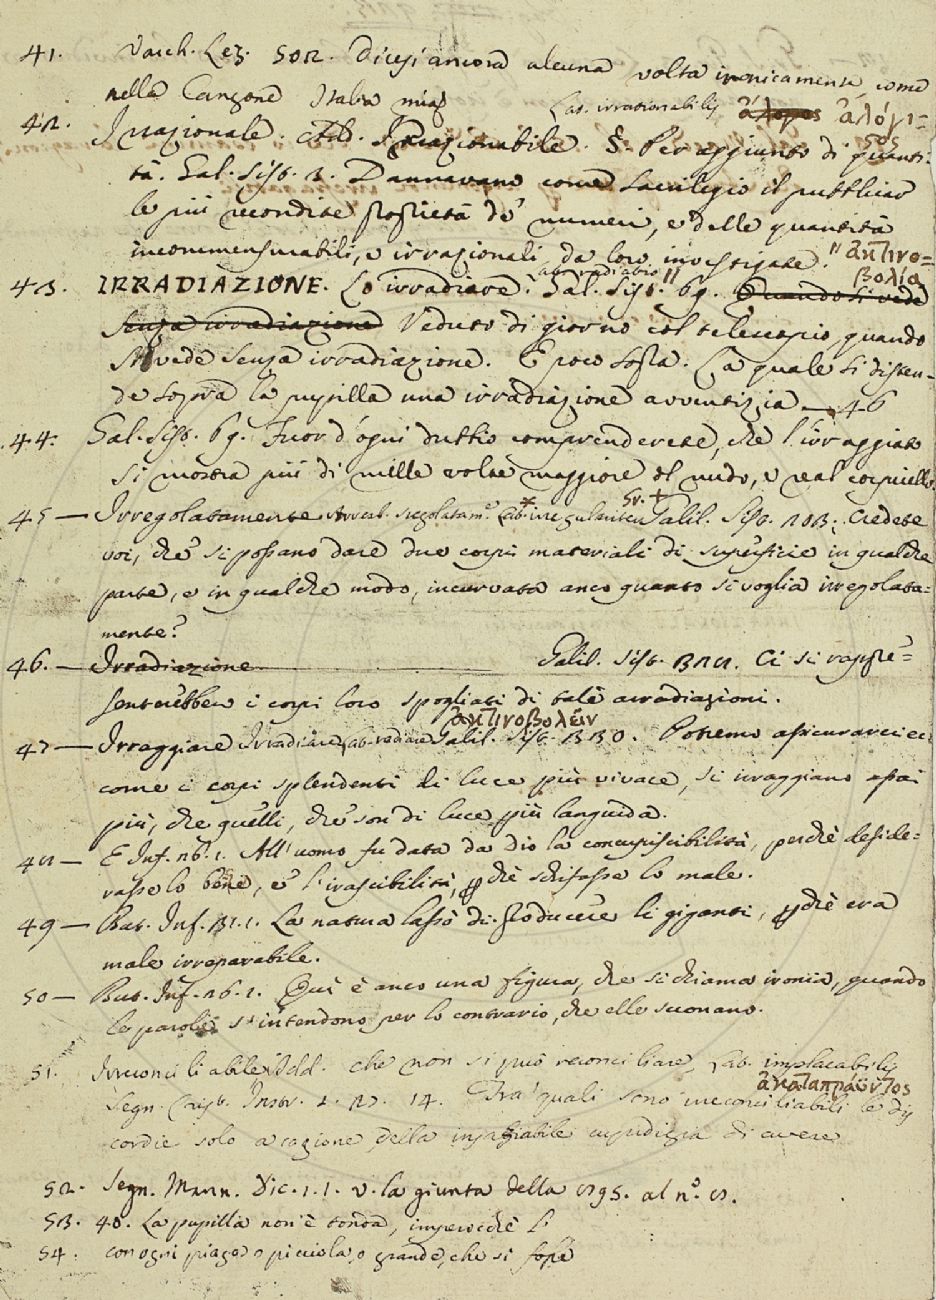 41. Varch. Lez. 502. Dicesi ancora alcuna volta ironicamente, come
nella Canzone Italia mia
Lat. irrationabilis ἄλογος ἀλόγι=
42. Irrazionale. Add. Irrazionabile. §. Per aggiunto di quanti-
σος
tà. Gal. Sist. 3. Dannavano come sacrilegio il pubblicar
le più recondite proprietà de' numeri, e delle quantità
incommensurabili, e irrazionali da loro investigate. " ἀκτινο=
βολία
43. IRRADIAZIONE. Lo irradiare. Lat. radiatio " Gal. Sist. 69. Quando si vede
senza irradiazione Veduto di giorno col telescopio, quando
si vede senza irradiazione. E poco sopra. La quale si disten-
de sopra la pupilla una irradiazione avventizia — 46
44. Gal. Sist. 69. Fuor d'ogni dubbio comprenderete, che l'irraggiato
si mostra più di mille volte maggiore del nudo, e real corpicello.
45 — Irregolatamente Avverb. regolatam.e Lat. * irregulariter Gr. + Galil. Sist. 203. Credete
voi, che si possano dare due corpi materiali di superficie in qualche
parte, e in qualche modo, incurvata anco quanto si voglia irregolata=
mente?
46. — Irradiazione Galil. Sist. 328. Ci si rappre=
senterebbero i corpi loro spogliati di tale irradiazioni.
ἀκτινοβολεῖν
47 — Irraggiare Irradiare Lat. radiare Galil. Sist. 330. Potremo assicurarci ec.
come i corpi splendenti di luce più vivace, si irraggiano assai
più, che quelli, che son di luce più languida.
48 — E Inf. 26. 1. All'uomo fu data da Dio la concupiscibilità, perchè deside-
rasse lo bene, e l'irascibilità, perchè schifasse lo male.
49 — But. Inf. 31. 1. La natura lassò di producere li giganti, perchè era
male irreparabile.
50 — But. Inf. 26. 1. Qui è anco una figura, che si chiama ironia, quando
le parole s'intendono per lo contrario, che elle suonano.
51. Irreconciliabile Add. che non si può reconciliare, Lat. implacabilis
ἀκαταπράϋντος
Segn. Crist. Instr. 1. 23. 14. Tra' quali sono irreconciliabili le dis
cordie solo a cagione della insaziabile cupidigia di avere
52. Segn. Mann. Dic. 1. 1. v. la giunta della 895. al n.º 8.
53. 40. La pupilla non è tonda, imperochè l'
54. con ogni piaga o picciola, o grande, che si fosse